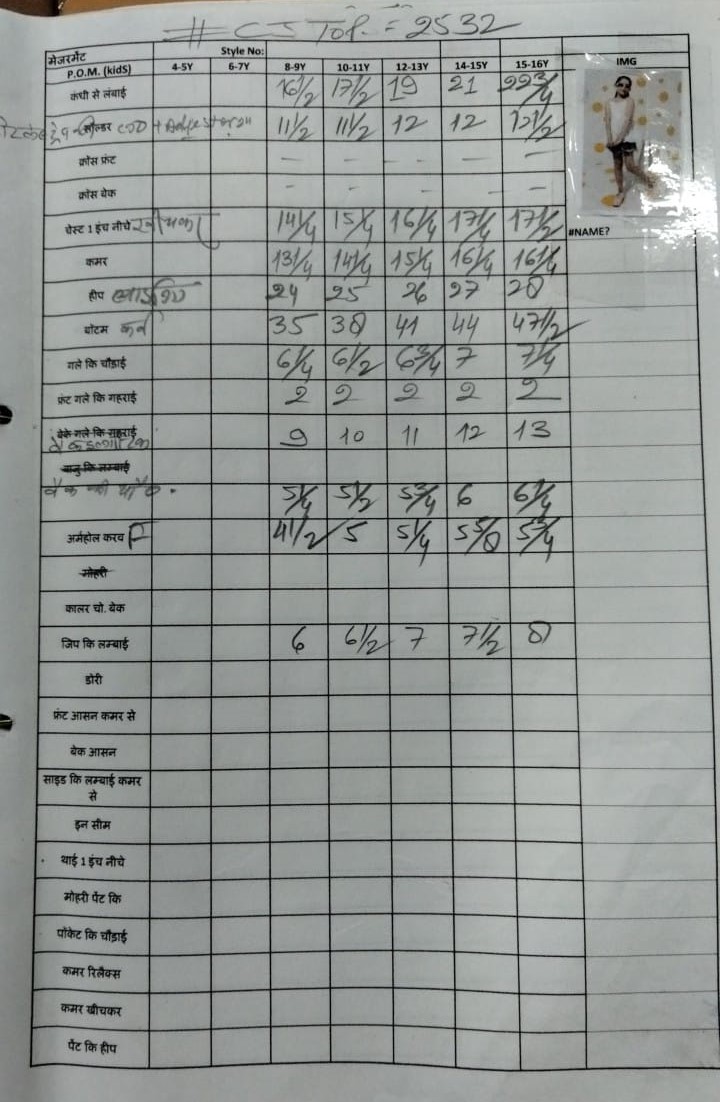 # CJ TOP. = 2532
मेजरमेंट Style No:
P.O.M. (kidS) 4-5Y 6-7Y 8-9Y 10-11Y 12-13Y 14-15Y 15-16Y IMG
कंधी से लंबाई 16½ 17½ 19 21 22¾
शोल्डर 11½ 11½ 12 12 12½
क्रॉस फ्रंट - - - - -
क्रॉस बेक - - - - -
चेस्ट 1 इंच नीचे खीचकर 14¼ 15¼ 16¼ 17¼ 17½
#NAME?
कमर 13¼ 14¼ 15¼ 16¼ 16¼
हीप 24 25 26 27 28
बोटम कर्व 35 38 41 44 47½
गले कि चौड़ाई 6¼ 6½ 6¾ 7 7¼
फ्रंट गले कि गहराई 2 2 2 2 2
बेक गले कि गहराई 9 10 11 12 13
बाजु कि लम्बाई
5¼ 5½ 5¾ 6 6¼
अर्महोल करव F 4½ 5 5¼ 5⅝ 5¾
मोहरी
कालर चो. बेक
जिप कि लम्बाई 6 6½ 7 7½ 8
डोरी
फ्रंट आसन कमर से
बेक आसन
साइड कि लम्बाई कमर
से
इन सीम
थाई 1 इंच नीचे
मोहरी पेंट कि
पॉकेट कि चौड़ाई
कमर रिलैक्स
कमर खीचकर
पेंट कि हीप